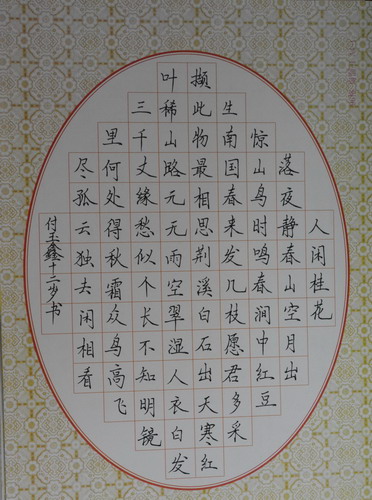 人闲桂花
落夜静春山空月出
惊山鸟时鸣春涧中红豆
生南国春来发几枝愿君多采
撷此物最相思荆溪白石出天寒红
叶稀山路元无雨空翠湿人衣白发
三千丈緣愁似个长不知明镜
里何处得秋霜众鸟高飞
尽孤云独去闲相看
付玉鑫十二岁书